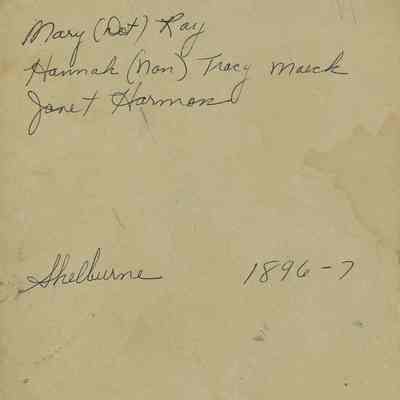 Mary (Dot) Ray
Hannah (Nan) Tracy Maeck
Janet Harmon
Shelburne 1896-7